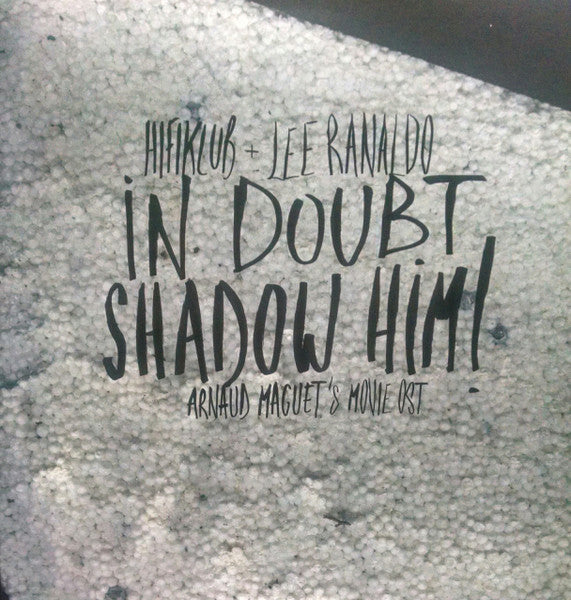 HIFIKLUB + LEE RANALDO
iN DOUBT
SHADOW HiM!
ARNAUD MAGUET'S MOVIE OST